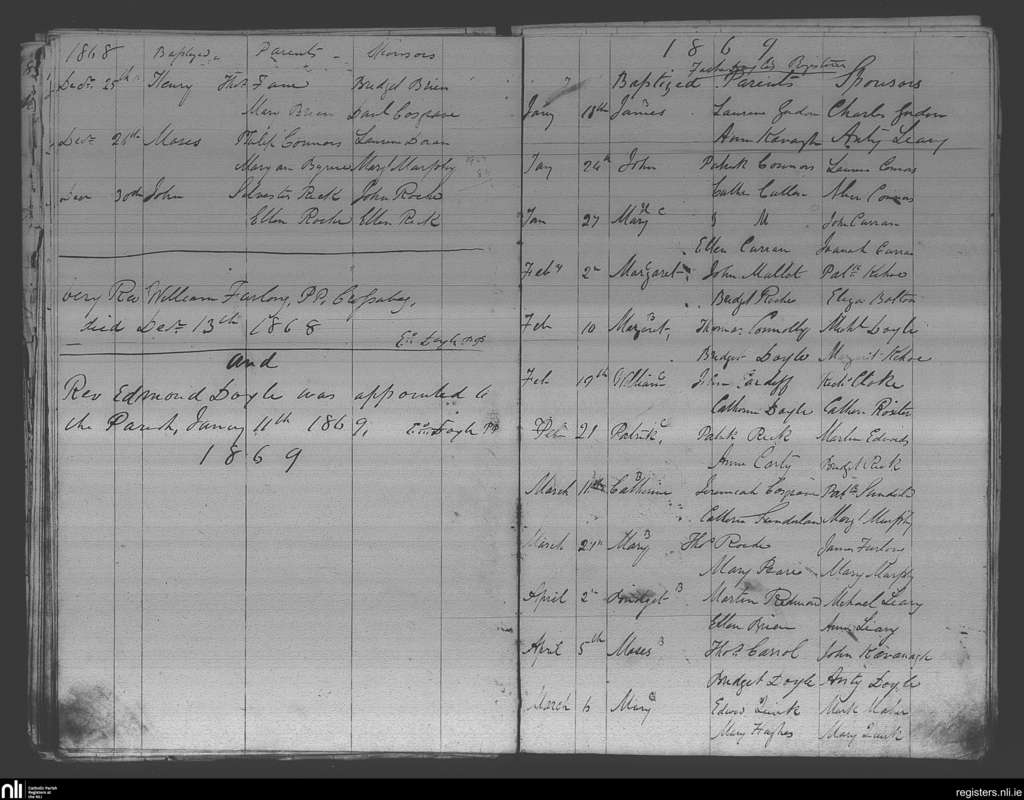 1868 Baptized Parents Sponsors
Decr 25th Henry Thos Fane Bridget Brien
Mary Brien Danl Cosgrave
Decr 26th Moses Philip Connors Laurence Doran
Maryan Byrne Mary Murphy
Decr 30th John Silvester Reck John Roche
Ellen Roche Ellen Reck
very Rev William Furlong, PP,
died Decr 13th 1868
Ed Doyle PP
and
Rev Edmond Doyle was appointed to
the Parish, January 11th 1869, Ed Doyle PP
1869
1869
Baptized Parents Sponsors
Jany 18th James Laurence Gordon Charles Gordon
Ann Kavagh Anty Leary
Jany 24th John Patrick Connors Laurence Connors
Cathe Cullen Connors
Jan 27 Mary John Curran
Ellen Curran Curran
Feby 2n Margaret John Mallot Patk Kehoe
Bridget Roche Eliza Bolton
Feb 10 Margaret, Thomas Connolly Michl Doyle
Bridget Doyle Margaret Kehoe
Feb 19th William John Cardiff
Catherine Doyle Cathern
Feb 21 Patrick, Patrick Reck Martin Edwards
Anne Carty Bridget Reck
March 11th Catherine Jeremiah Cosgrave Patk
Cathern Margt Murphy
March 27th Mary Thos Roche James Furlong
Mary Mary Murphy
April 2n Bridget Martin Redmond Michael Leary
Ellen Brien Anne Leary
April 5th Moses Thos Carrol John Kavanagh
Bridget Doyle Anty Doyle
March 6 Mary Edward Quirk Mark Maher
Mary Hughes Mary Quirk
nli
Catholic Parish
Registers at
the NLI
registers.nli.ie